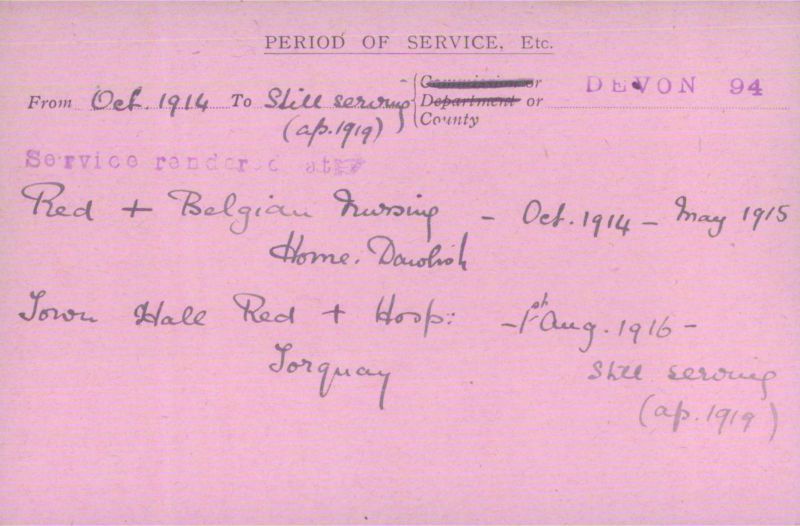 PERIOD OF SERVICE, Etc.
From Oct. 1914 To Still serving (ap. 1919) Commission or Department or County DEVON 94
Service rendered at
Red + Belgian Nursing Home. Dawlish - Oct. 1914 - May 1915
Town Hall Red + Hosp: Torquay - 1st Aug. 1916 - Still serving (ap. 1919)